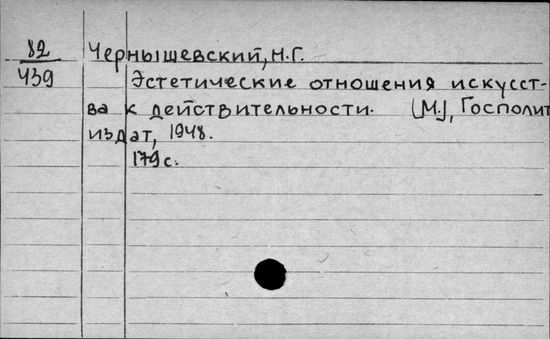 82
439
Чернышевский, Н.Г.
Эстетические отношения искусст-
ва к действительности. [М.], Госполит
издат, 1948.
179 с.